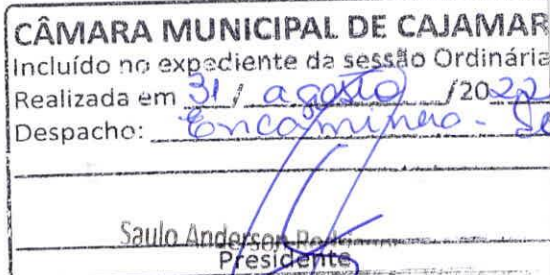 CÂMARA MUNICIPAL DE CAJAMAR
Incluído no expediente da sessão Ordinária
Realizada em 31 / agosto /2022
Despacho: Encaminha - Se
Saulo Anderson
Presidente